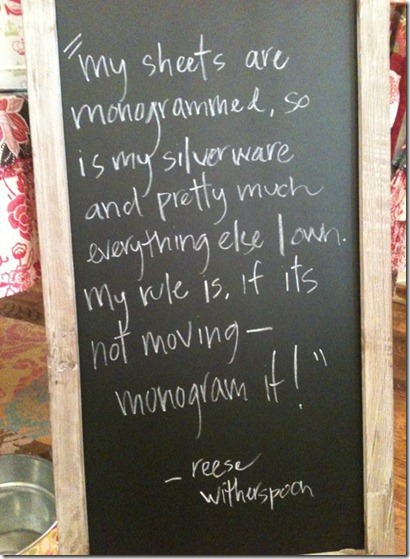 "my sheets are
monogrammed, so
is my silverware
and pretty much
everything else I own.
my rule is, if its
not moving —
monogram it!"
— reese
witherspoon